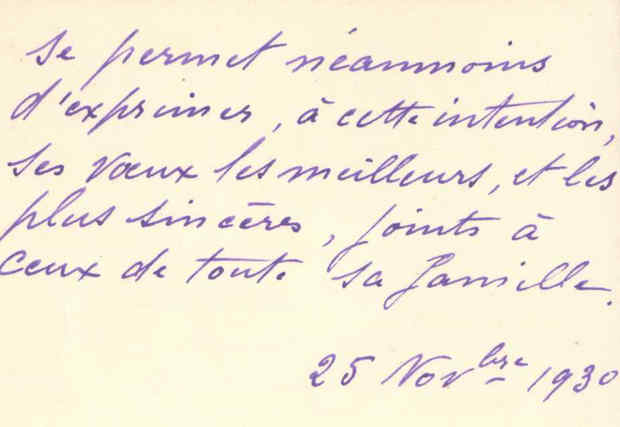 se permet néanmoins
d'exprimer, à cette intention,
ses vœux les meilleurs, et les
plus sincères, joints à
ceux de toute sa famille.
25 Novbre 1930